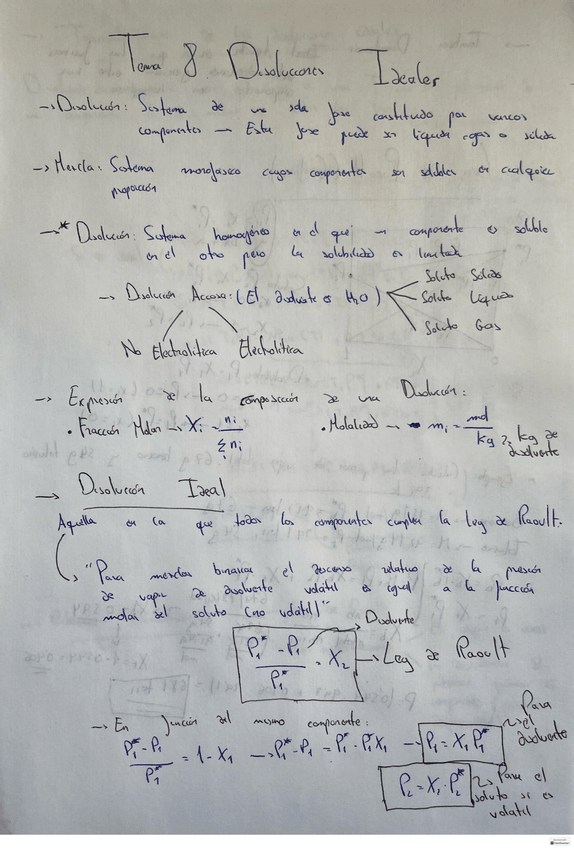 Tema 8. Disoluciones Ideales
→ Disolución: Sistema de una sola fase constituido por varios
componentes → Esta fase puede ser líquida o gas o sólida
→ Mezcla: Sistema monofásico cuyos componentes son solubles en cualquier
proporción
→ * Disolución: Sistema homogéneo en el que un componente es soluble
en el otro pero la solubilidad es limitada
→ Disolución Acuosa: (El disolvente es H₂O)
Soluto Sólido
Soluto Líquido
Soluto Gas
No Electrolítica Electrolítica
→ Expresión de la composición de una Disolución:
• Fracción Molar → Xi = ni / Σni • Molalidad → mi = mol / kg → kg de disolvente
→ Disolución Ideal
Aquella en la que todos los componentes cumplen la Ley de Raoult.
"Para mezclas binarias el descenso relativo de la presión
de vapor de disolvente volátil es igual a la fracción
molar del soluto (no volátil)"
Disolvente
(P₁* - P₁) / P₁* = X₂ → Ley de Raoult
→ En función del mismo componente:
(P₁* - P₁) / P₁* = 1 - X₁ → P₁* - P₁ = P₁* - P₁*X₁ → P₁ = X₁ P₁*
Para
el
disolvente
P₂ = X₂ · P₂*
Para el
soluto si es
volátil